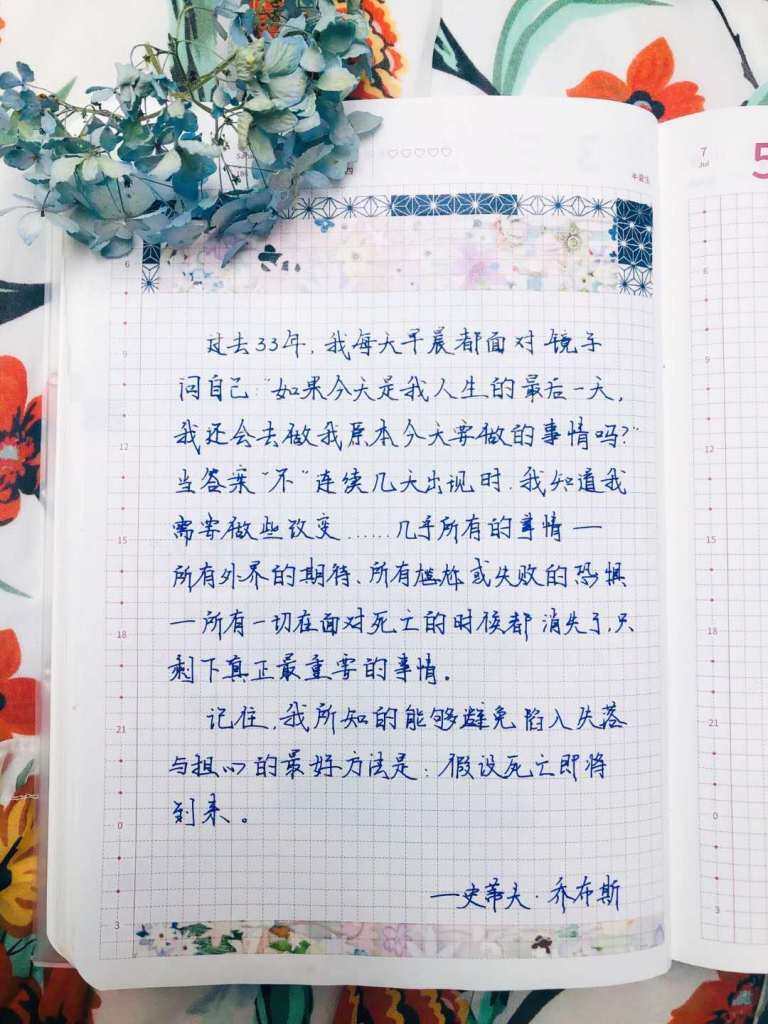 7
Jul
5
6
9
12
15
18
21
0
3
过去33年,我每天早晨都面对镜子
问自己:"如果今天是我人生的最后一天,
我还会去做我原本今天要做的事情吗?"
当答案"不"连续几天出现时,我知道我
需要做些改变……几乎所有的事情—
所有外界的期待、所有尴尬或失败的恐惧
—所有一切在面对死亡的时候都消失了,只
剩下真正最重要的事情。
记住,我所知的能够避免陷入失落
与担心的最好方法是:假设死亡即将
到来。
—史蒂夫·乔布斯
6
9
12
15
18
21
0
3